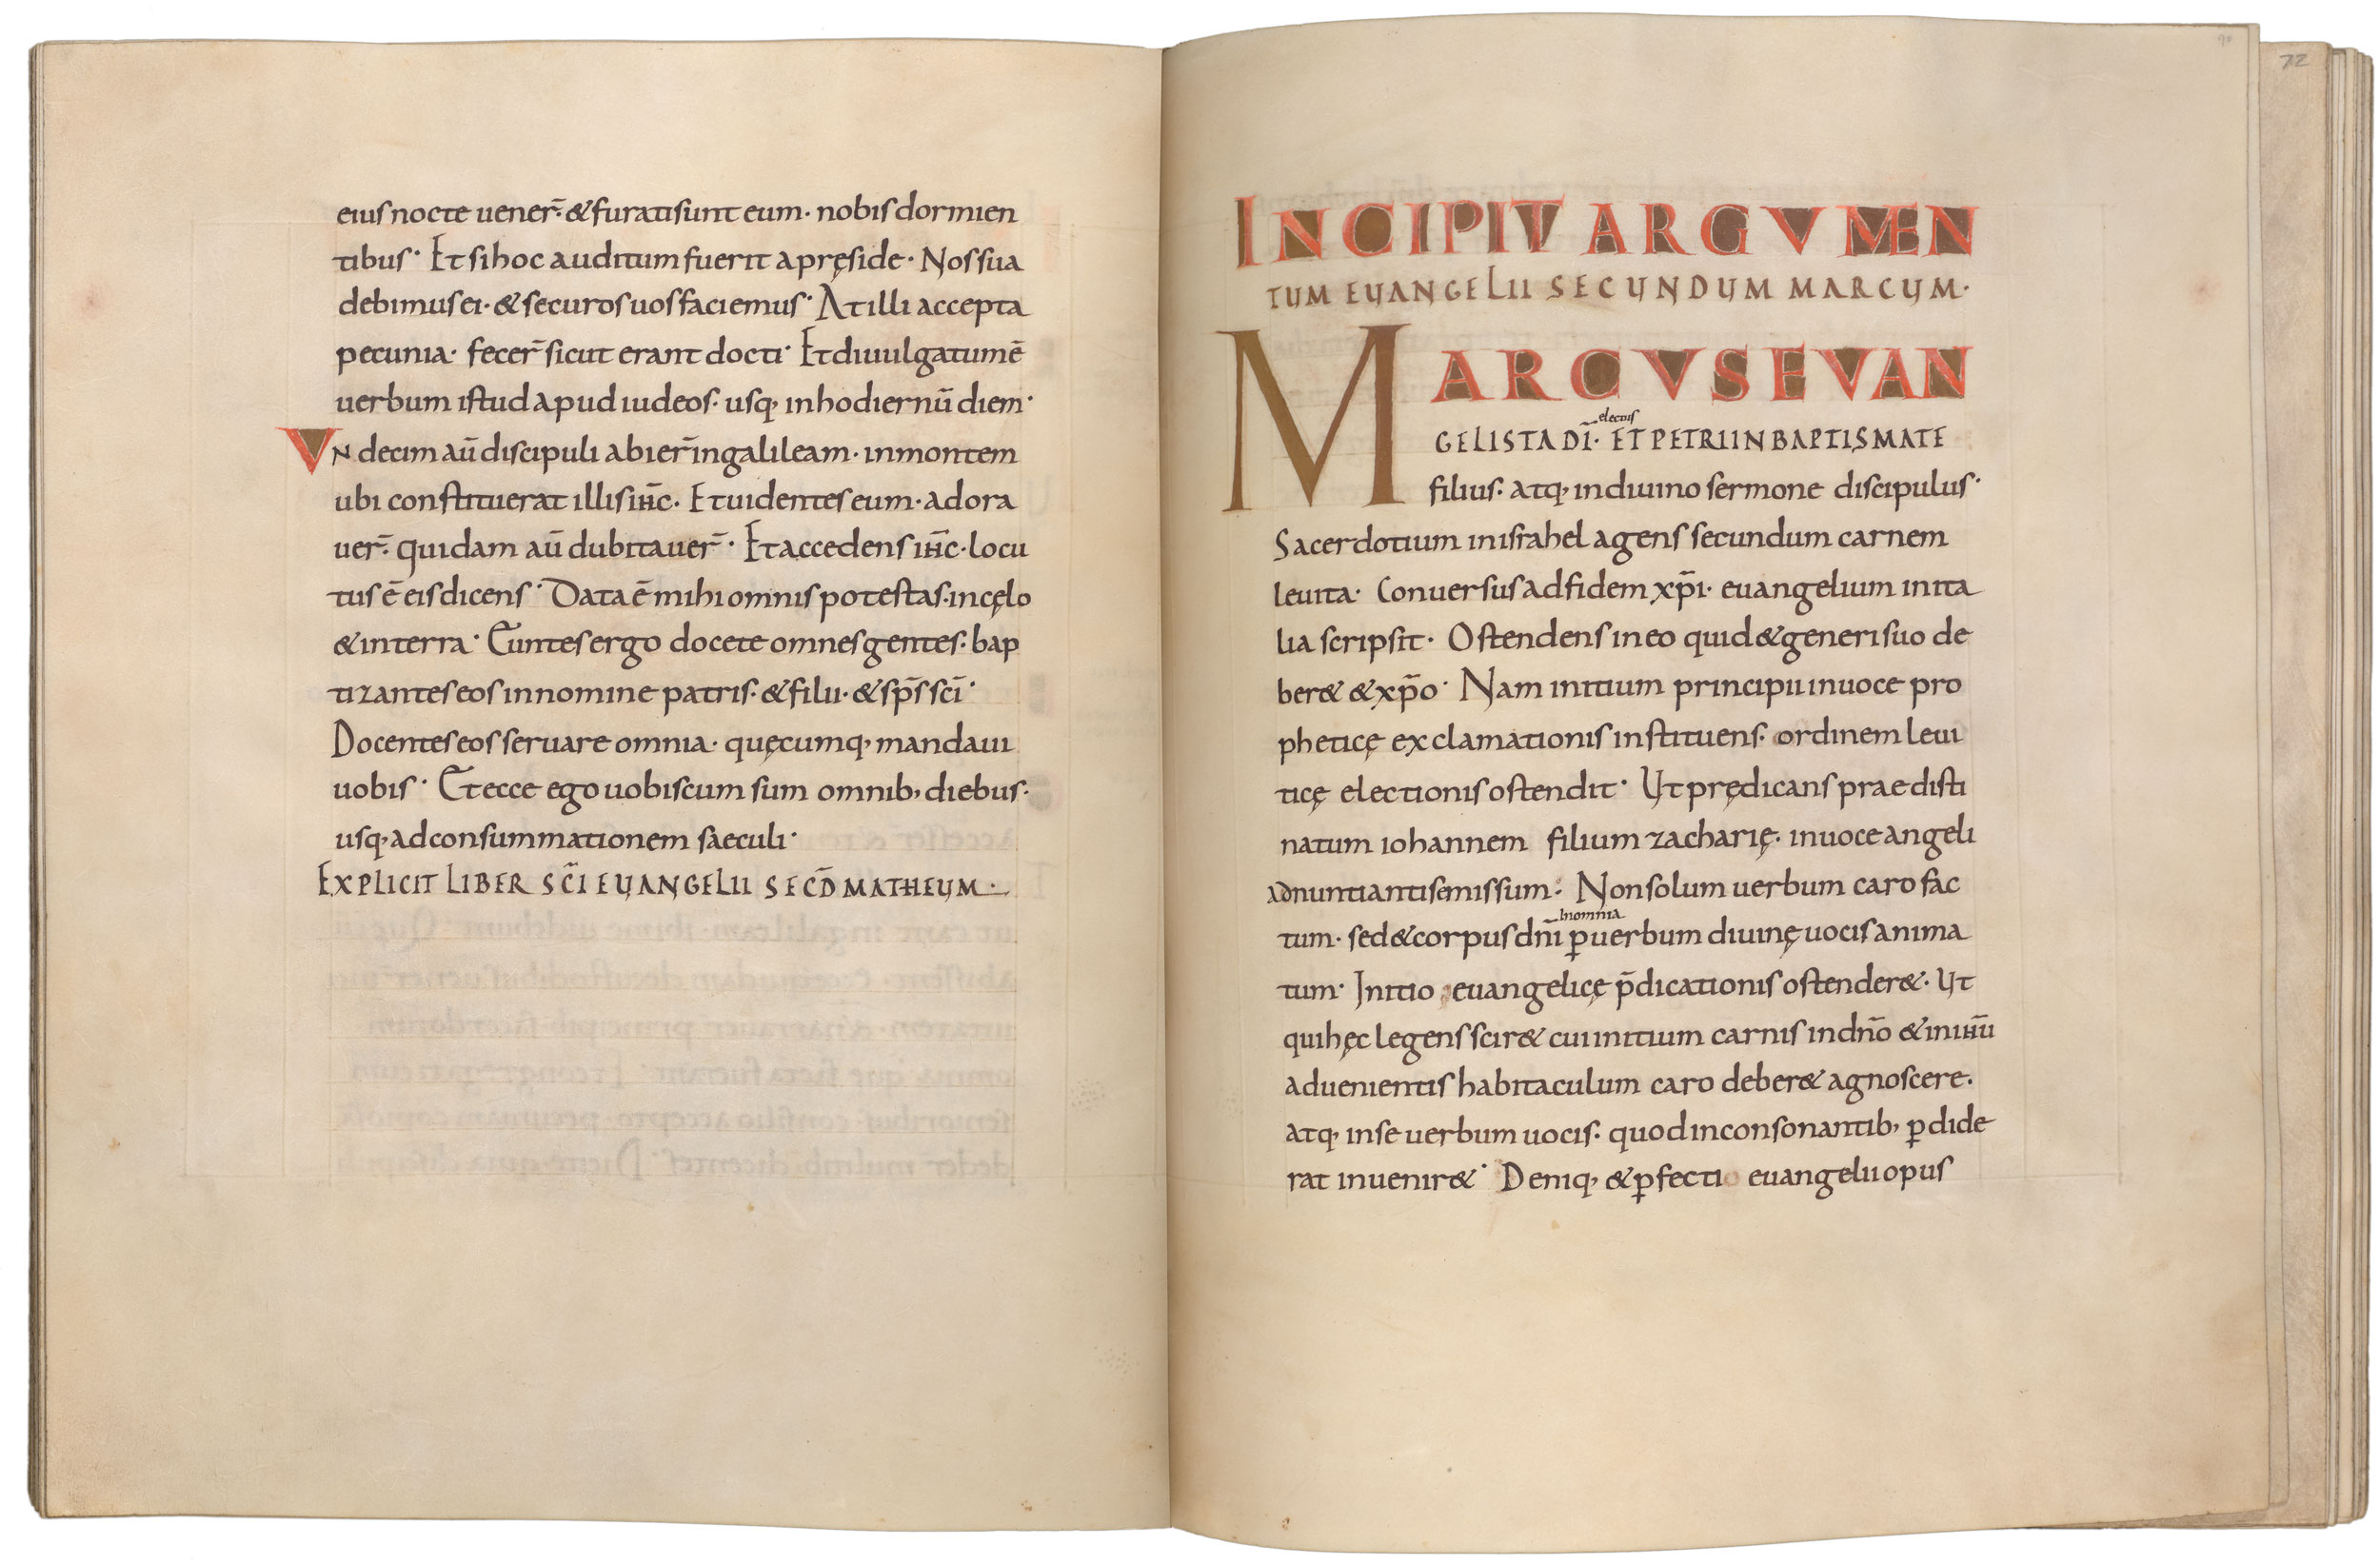 eius nocte uener̄· & furati sunt eum· nobis dormien
tibus· Et si hoc auditum fuerit a pręside· Nos sua
debimus ei· & securos uos faciemus· At illi accepta
pecunia· fecer̄ sicut erant docti· Et diuulgatum ē
uerbum istud apud iudeos· usq, in hodiernū diem·
VNdecim aū discipuli abier̄ in galileam· in montem
ubi constituerat illis ih̄c· Et uidentes eum· adora
uer̄· quidam aū dubitauer̄· Et accedens ih̄c· locu
tus ē eis dicens· Data ē mihi omnis potestas· in cęlo
& in terra· Euntes ergo docete omnes gentes· bap
tizantes eos in nomine patris· & filii· & sp̄s sc̄i·
Docentes eos seruare omnia· quęcumq, mandaui
uobis· Et ecce ego uobiscum sum omnib, diebus·
usq, ad consummationem saeculi·
EXPLICIT LIBER SC̄I EUANGELII SECD̄ MATHEUM·
INCIPIT ARGVMEN
TUM EUANGELII SECUNDUM MARCUM·
MARCVS EVAN
electus
GELISTA DĪ· ET PETRI IN BAPTISMATE
filius· atq, in diuino sermone discipulus·
Sacerdotium in israhel agens secundum carnem
leuita· Conuersus ad fidem xp̄i· euangelium in ita
lia scripsit· Ostendens in eo quid & generi suo de
ber& & xp̄o· Nam initium principii in uoce pro
pheticę exclamationis instituens· ordinem leui
ticę electionis ostendit· Ut prędicans praedisti
natum iohannem filium zacharię· in uoce angeli
adnuntiantis emissum· Non solum uerbum caro fac
in omnia
tum· sed & corpus dn̄i ꝑ uerbum diuinę uocis anima
tum· Initio euangelicę p̄dicationis ostender&· Ut
qui hęc legens scir& cui initium carnis in dn̄o & in ih̄u
aduenientis habitaculum caro deber& agnoscere·
atq, in se uerbum uocis· quod in consonantib, ꝑdide
rat inuenir&· Deniq, & ꝑfecti euangelii opus
72